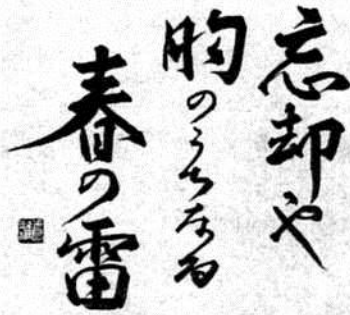 忘却や
胸のうちなる
春の雷